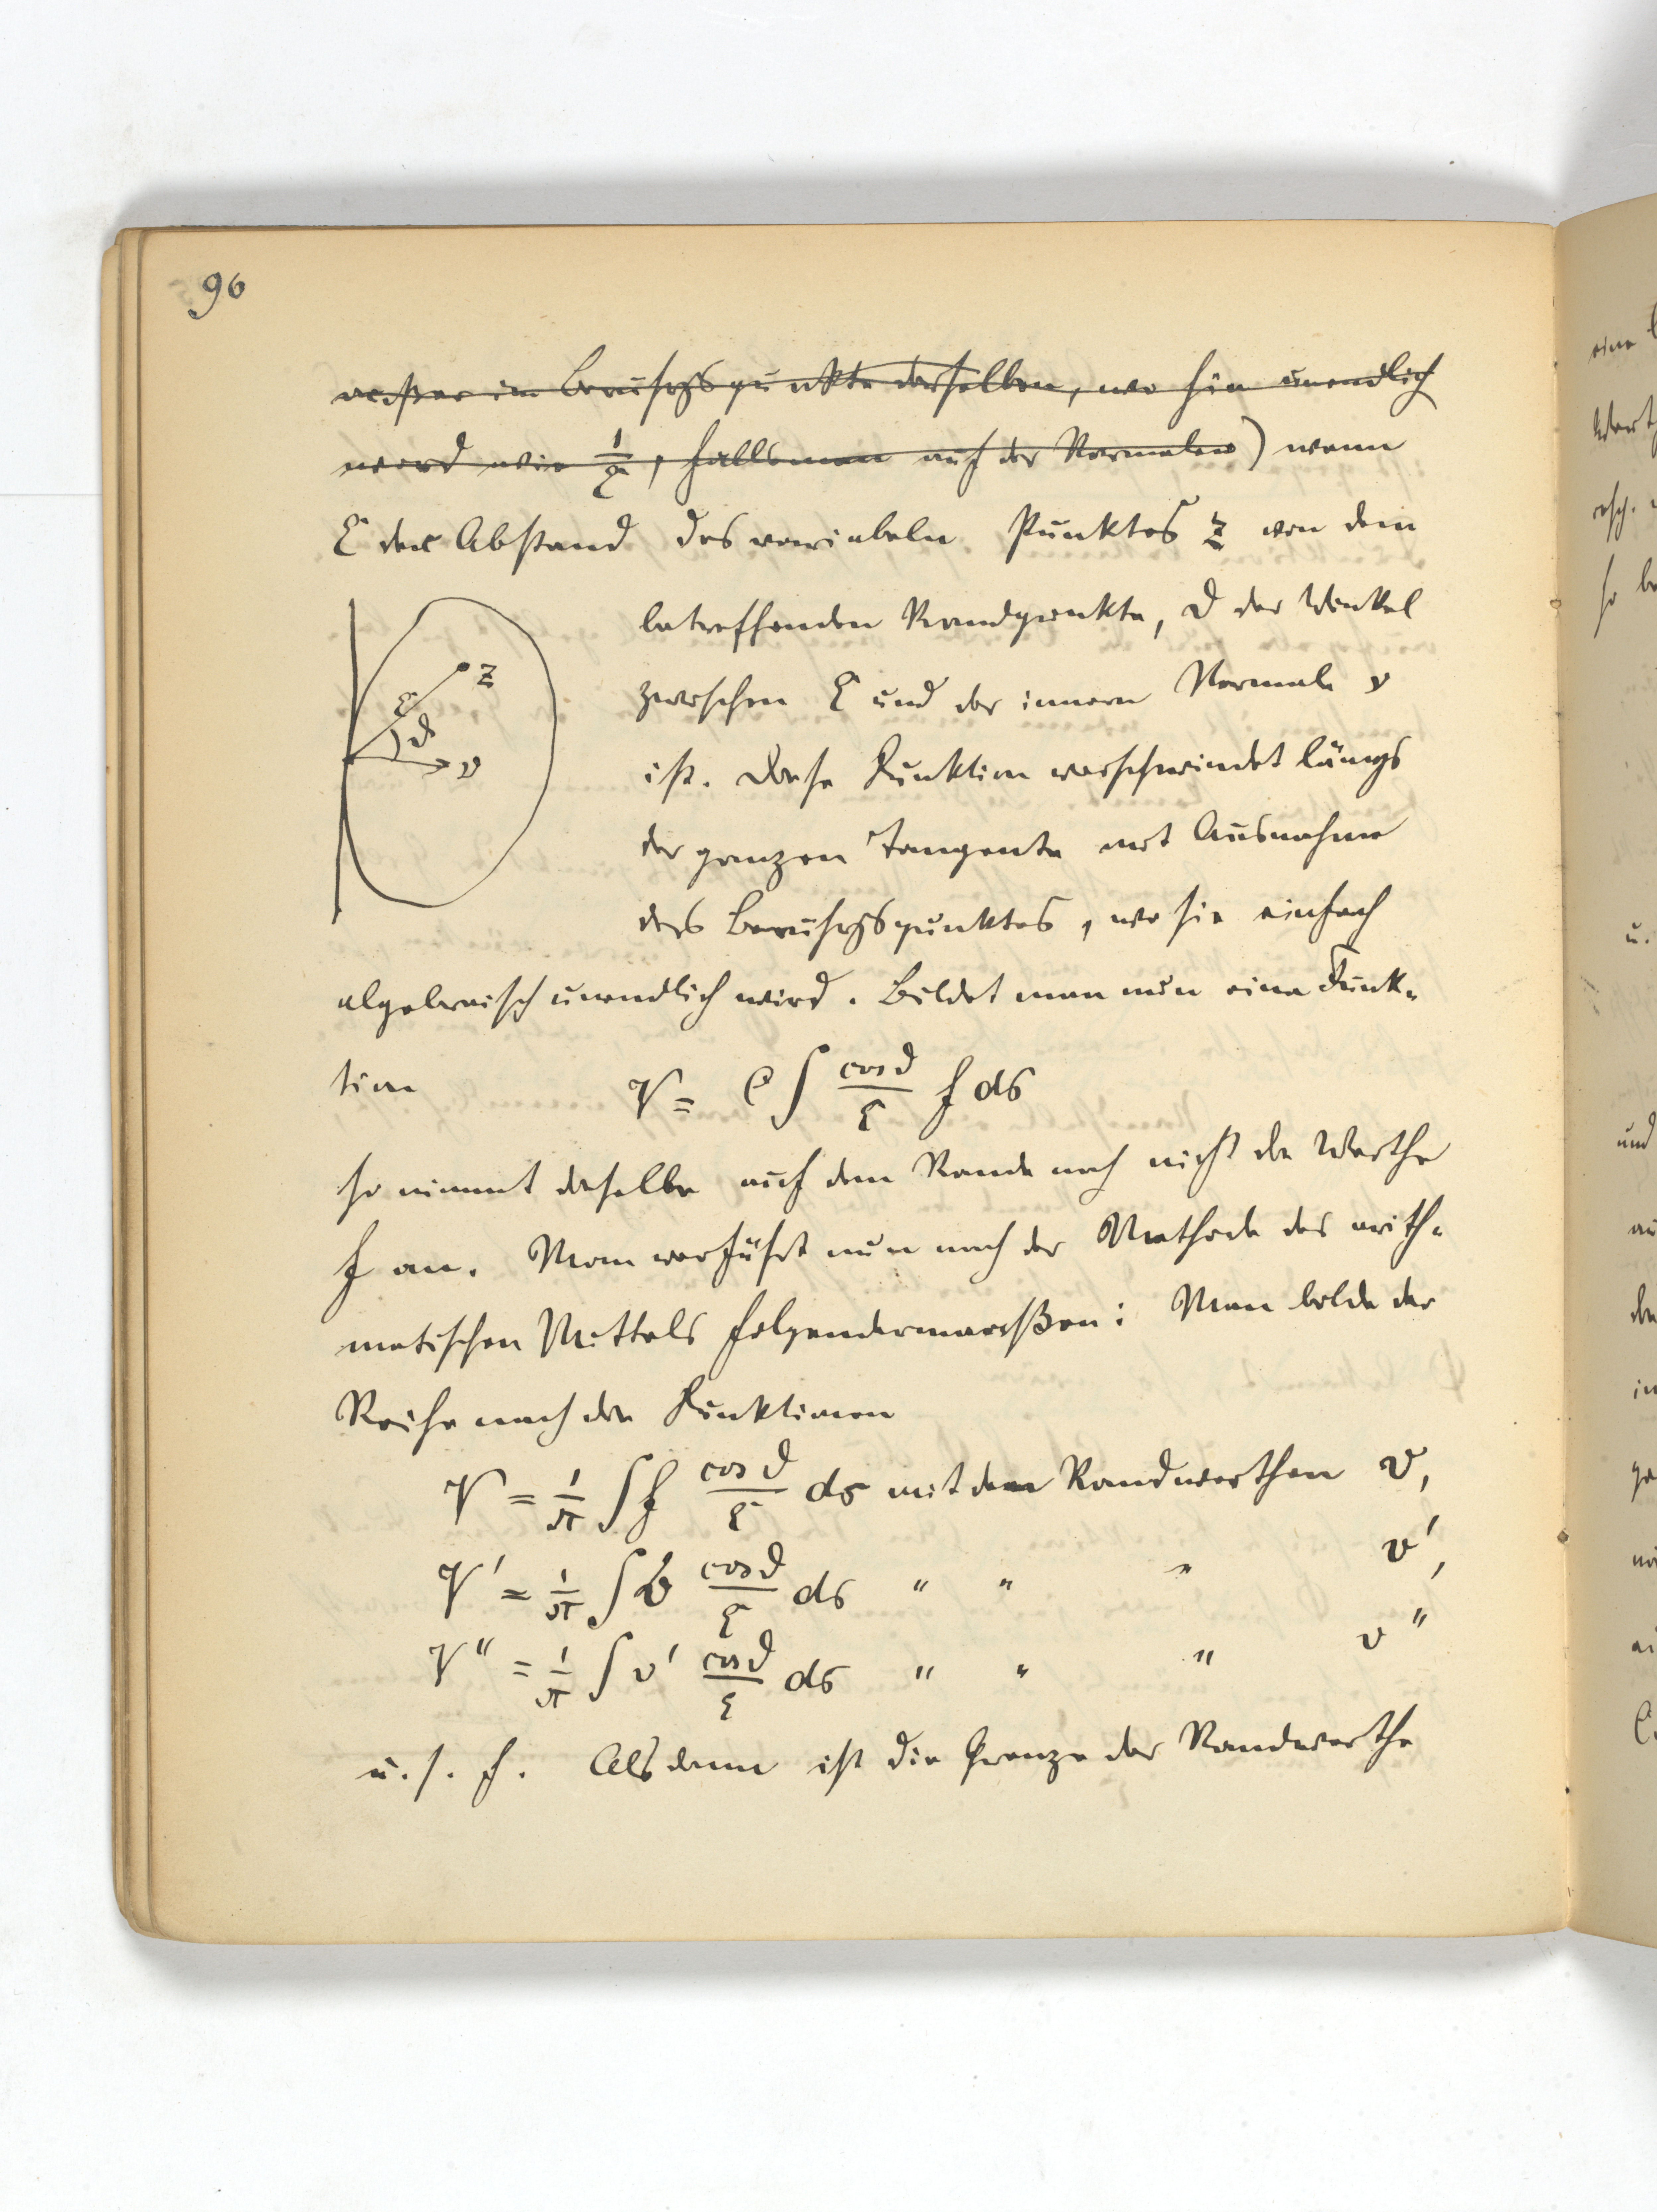 96
außer im Berührgspunkte derselben, wo sie unendlich
wird wie 1/ξ, falls man auf der Normalen) wenn
ξ der Abstand des variabeln Punktes z von dem
betreffenden Randpunkte, ϑ der Winkel
zwischen ξ und der innern Normale ν
ist. Diese Funktion verschwindet längs
der ganzen Tangente mit Ausnahme
des Berührgspunktes, wo sie einfach
algebraisch unendlich wird. Bildet man nun eine Funk-
tion V = C ∫ cos ϑ/ξ f ds
so nimmt dieselbe auf dem Rande noch nicht die Werthe
f an. Man verfährt nun nach der Methode des arith-
metischen Mittels folgendermaaßen: Man bilde der
Reihe nach die Funktionen
V = 1/π ∫ f cos ϑ/ξ ds mit den Randwerthen v,
V' = 1/π ∫ v cos ϑ/ξ ds " " " v',
V'' = 1/π ∫ v' cos ϑ/ξ ds " " " v''
u. s. f. Alsdann ist die Grenze der Randwerthe
z
ξ
ϑ
ν